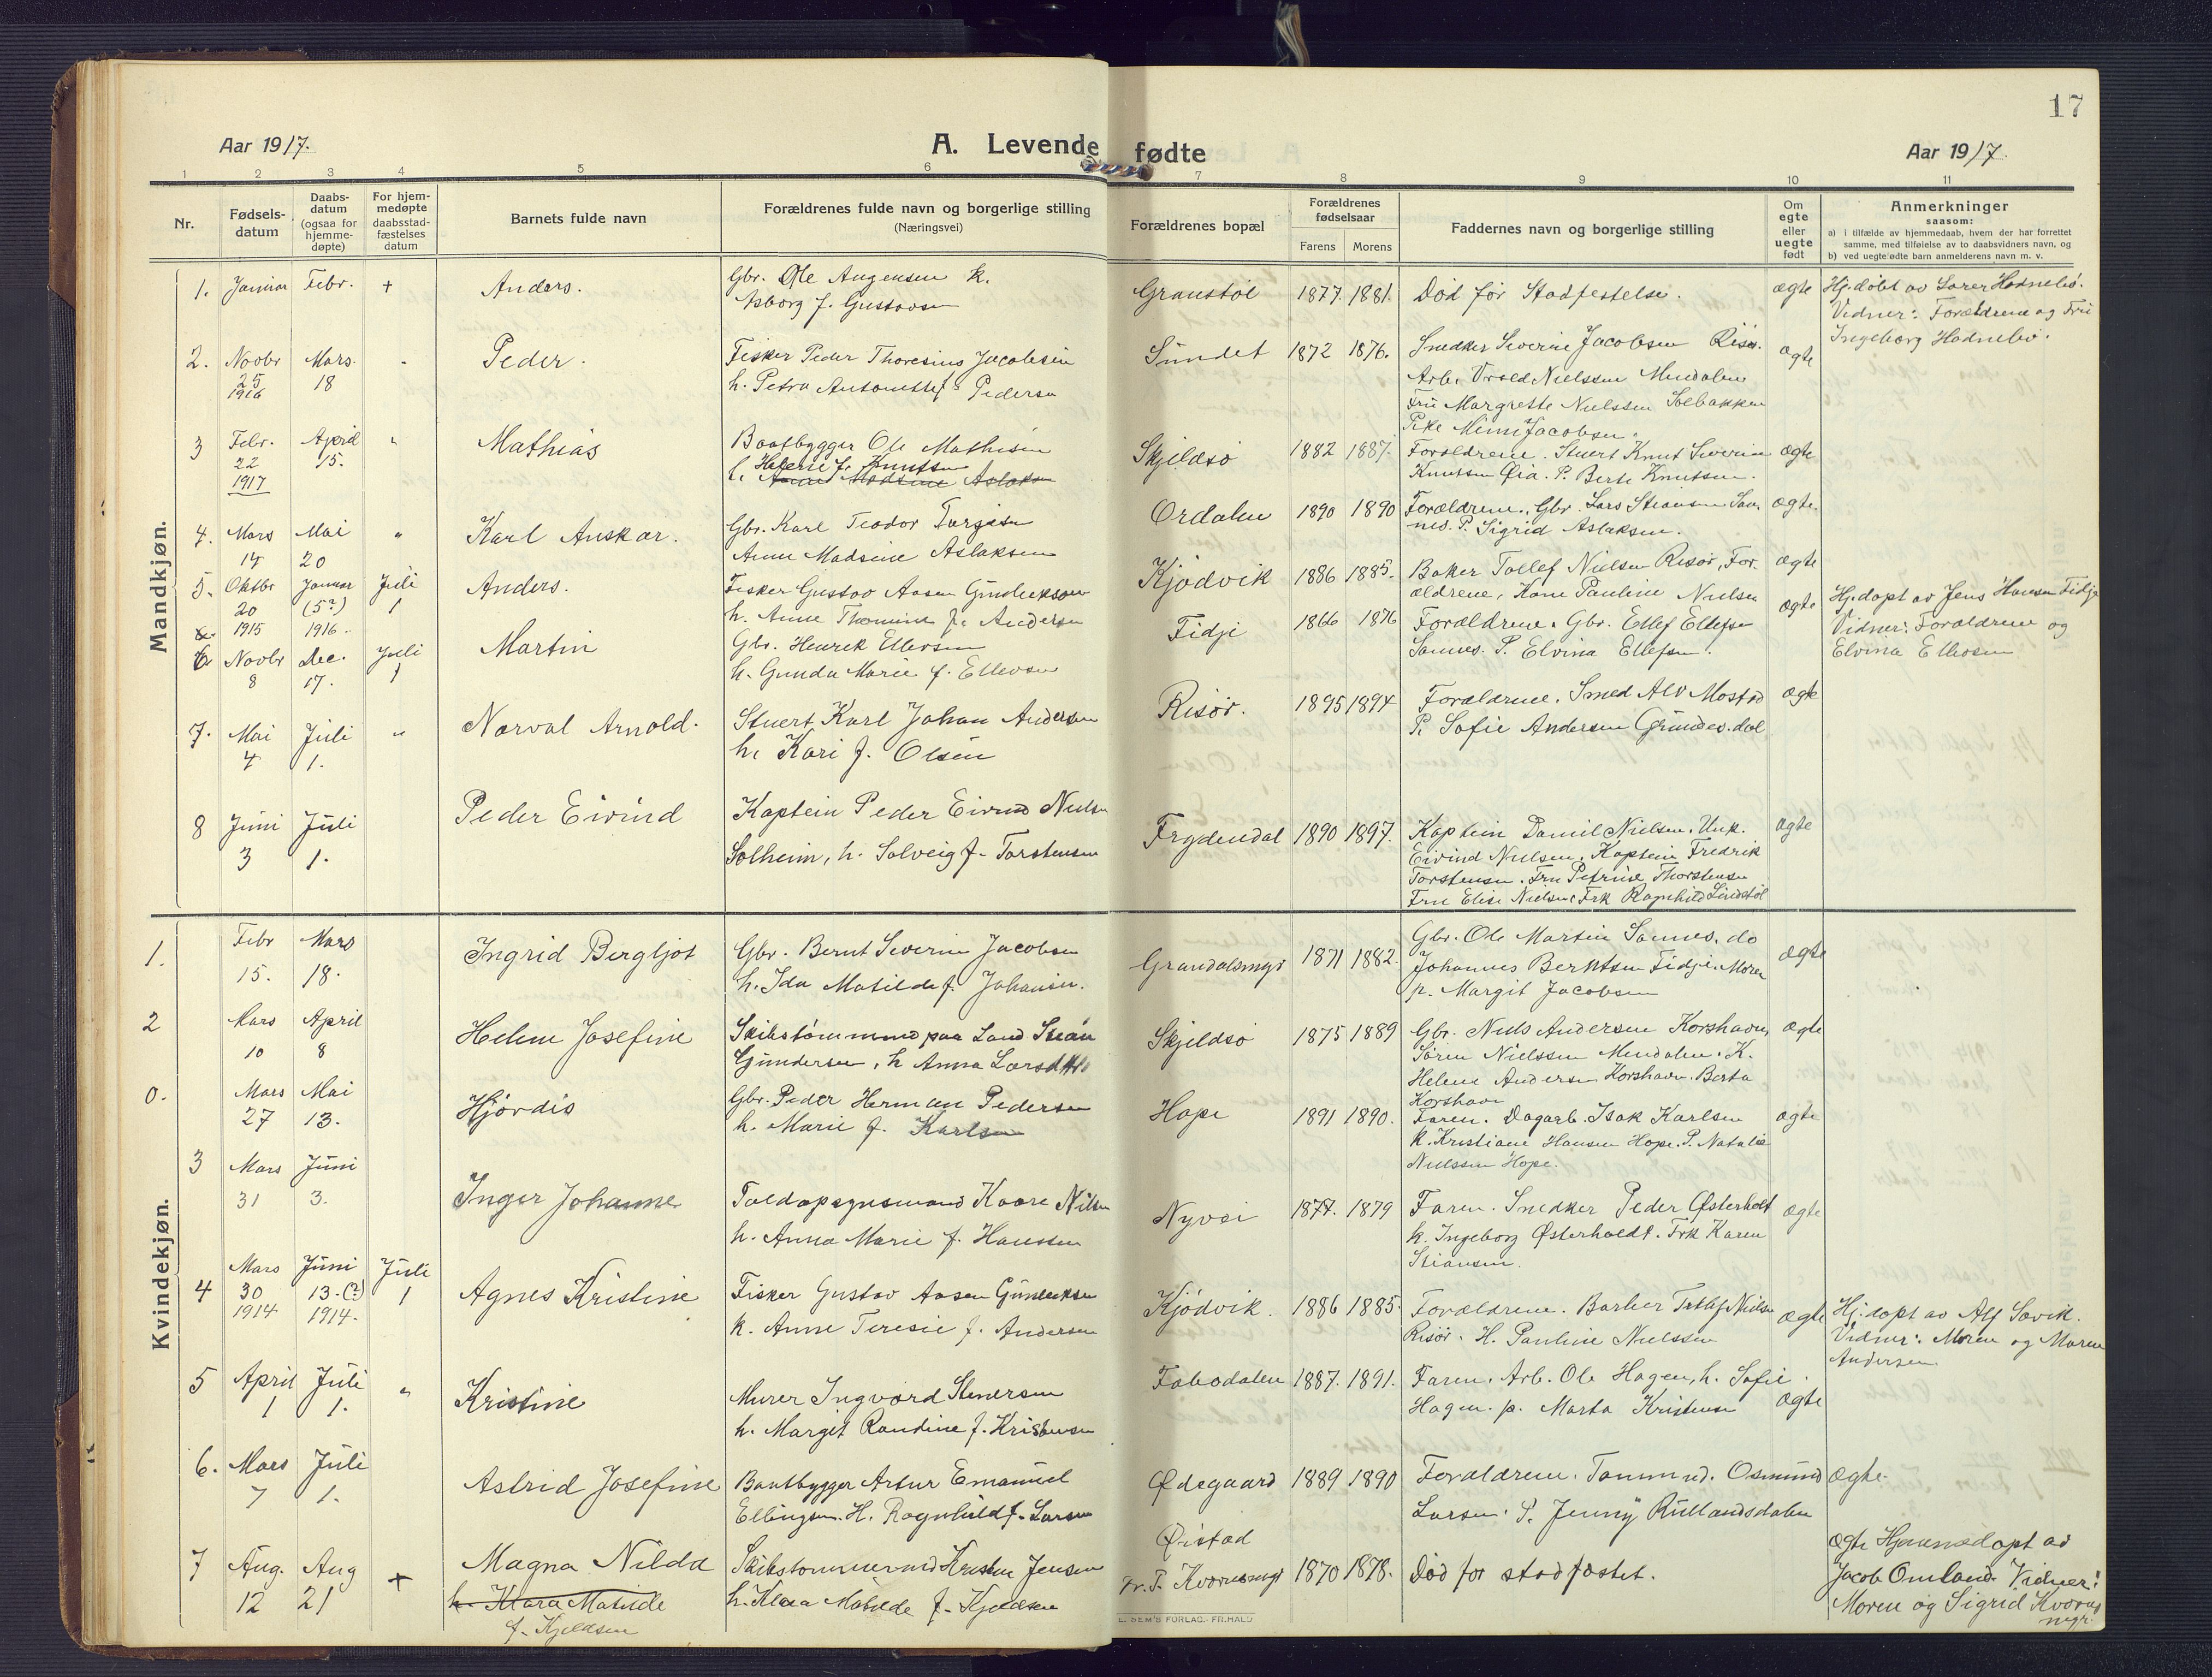 17
Aar 1917.
A. Levende fødte
Aar 1917.
1 2 3 4 5 6 7 8 9 10 11
Nr.
Fødsels-
datum
Daabs-
datum
(ogsaa for
hjemme-
døpte)
For hjem-
medøpte
daabsstad-
fæstelses
datum
Barnets fulde navn
Forældrenes fulde navn og borgerlige stilling
(Næringsvei)
Forældrenes bopæl
Forældrenes
fødselsaar
Farens Morens
Faddernes navn og borgerlige stilling
Om
egte
eller
uegte
født
Anmerkninger
saasom:
a) i tilfælde av hjemmedaab, hvem der har forrettet
samme, med tilføielse av to daabsvidners navn, og
b) ved uegte fødte barn anmelderens navn m. v.
Mandkjøn.
1. Januar Febr. + Anders. Gbr. Ole Augensen k.
Asborg f. Gustavsen
Granstøl 1877. 1881. Død før Stadfestelse. ægte
Hj. døbt av Lærer Hødnebø.
Vidner: Forældrene og Fru
Ingeborg Hødnebø.
2. Novbr Mars Peder. Fisker Peder Thoresius Jacobsen
25 18 h. Petra Antonette f. Pedersen
1916
Sundet 1872 1876. Snedker Severin Jacobsen Risør. ægte
Arb. Nielssen Mindalen
Fru Margrethe Nielssen Solbakken
Pike Minni Jacobsen.
3 Febr. April " Mathias Baatbygger Ole Mathisen
22 15. h. Helene f. Knutsen
1917 Aslaksen
Skjeldsø 1882 1887. Forældrene. Stuert Knut Severin ægte
Knutsen Øia. P. Berte Knutsen.
4. Mars Mai " Karl Anskar. Gbr. Karl Teodor Torgesen
14 20 Anne Madsine Aslaksen
Ordalen 1890 1890 Forældrene, Gbr. Lars Stiansen San- ægte.
nes. P. Sigrid Aslaksen.
5. Oktbr Januar Juli Anders. Fisker Gustav Aasen Gundersen
20 (5?) 1 h. Anne Thomine f. Andersen
1915 1916.
Kjødvik 1886 1885. Baker Tollef Nielsen Risør, For- ægte
ældrene, Kone Pauline Nielsen
6 Novbr Dec. Juli Martin Gbr. Henrek Ellevsen
8 17. 1 h. Gunda Marie f. Ellevsen
Fidje 1866 1876 Forældrene. Gbr. Ellef Ellefsen ægte
Sannes. P. Elvina Ellefsen.
Hj. døpt av Jens Hansen Fidje
Vidner: Forældrene og
Elvina Ellevsen
7. Mai Juli " Norval Arnold. Stuert Karl Johan Andersen
4 1. h. Kari f. Olsen
Risør. 1895 1894 Forældrene. Smed Alv Mostad ægte
P. Sofie Andersen Grundesdal
8 Juni Juli Peder Eivind Kaptein Peder Eivind Nielsen
3 1. Solheim, h. Solveig f. Torstensen
Frydendal 1890 1897. Kaptein Daniel Nielsen. Unk. ægte
Eivind Nielsen. Kaptein Fredrik
Torstensen. Fru Petrine Thorstensen
Fru Elise Nielsen. Frk Ragnhild Lindstøl
Kvindekjøn.
1. Febr Mars Ingrid Bergljot Gbr. Bernt Severin Jacobsen
15. 18. h. Ida Matilde f. Johansen.
Grandalsmyr 1871 1882. Gbr. Ole Martin Sannes. do ægte
Johannes Berntsen Fidje. Moren
p. Margit Jacobsen
2 Mars April Helene Josefine Skibstømmermand paa Land Stian
10 8 Gundersen, h Anna
Skjeldsø 1875 1889 Gbr. Niels Andersen Korshavn, ægte
Søren Nielssen Mindalen. K.
Helene Andersen Korshavn. Berta
Korshavn
0. Mars Mai Hjørdis Gbr. Peder Herman Pedersen
27 13. h. Marie f. Karlsen
Hope 1891 1890. Faren. Dagarb. Isak Karlsen ægte
k. Kristiane Hansen Hope. P. Natalie
Nielssen Hope.
3 Mars Juni Inger Johanne Toldopsynsmand Kaare Nilsen
31 3. h. Anna Marie f. Hanssen
Nyvei 1877. 1879 Faren. Snedker Peder Østerholt ægte
k. Ingeborg Østerholdt. Frk Karen
Stiansen.
4 Mars Juni Juli Agnes Kristine Fisker Gustav Aasen Gundersen
30 13.(?) 1 k. Anne Teresie f. Andersen
1914 1914.
Kjødvik. 1886 1885. Forældrene. Barber Tollef Nielsen ægte
Risør. H. Pauline Nielssen
Hj. døpt av Alf Savik.
Vidner: Moren og Maren
Andersen
5 April Juli " Kristine Murer Ingvard Stenersen
1 1. h. Margit Randine f. Kristensen
1887. 1891. Faren. Arb. Ole Hagen, h. Sofie ægte
Hagen. p. Marta Kristensen
6. Mars Juli Astrid Josefine Baatbygger Artur Emanuel
7 1. Ellingsen. H. Ragnhild f. Larsen
Ødegaard 1889 1890 Forældrene. Tømmrd. Osmund ægte.
Larsen. P. Jenny Rullandsdalen
7 Aug. Aug + Magna Nilda Skibstømmermd Kristen Jensen
12 21 h. Klara Matilde h. Klara Matilde f. Kjeldsen
f. Kjeldsen
Øistad
1870 1878. Død før stadfæstet. ægte Hjemmedøpt av
Jacob Omland. Vidner:
Moren og Sigrid Kvorns
myr.
E. SEM'S FORLAG. FR.HALD